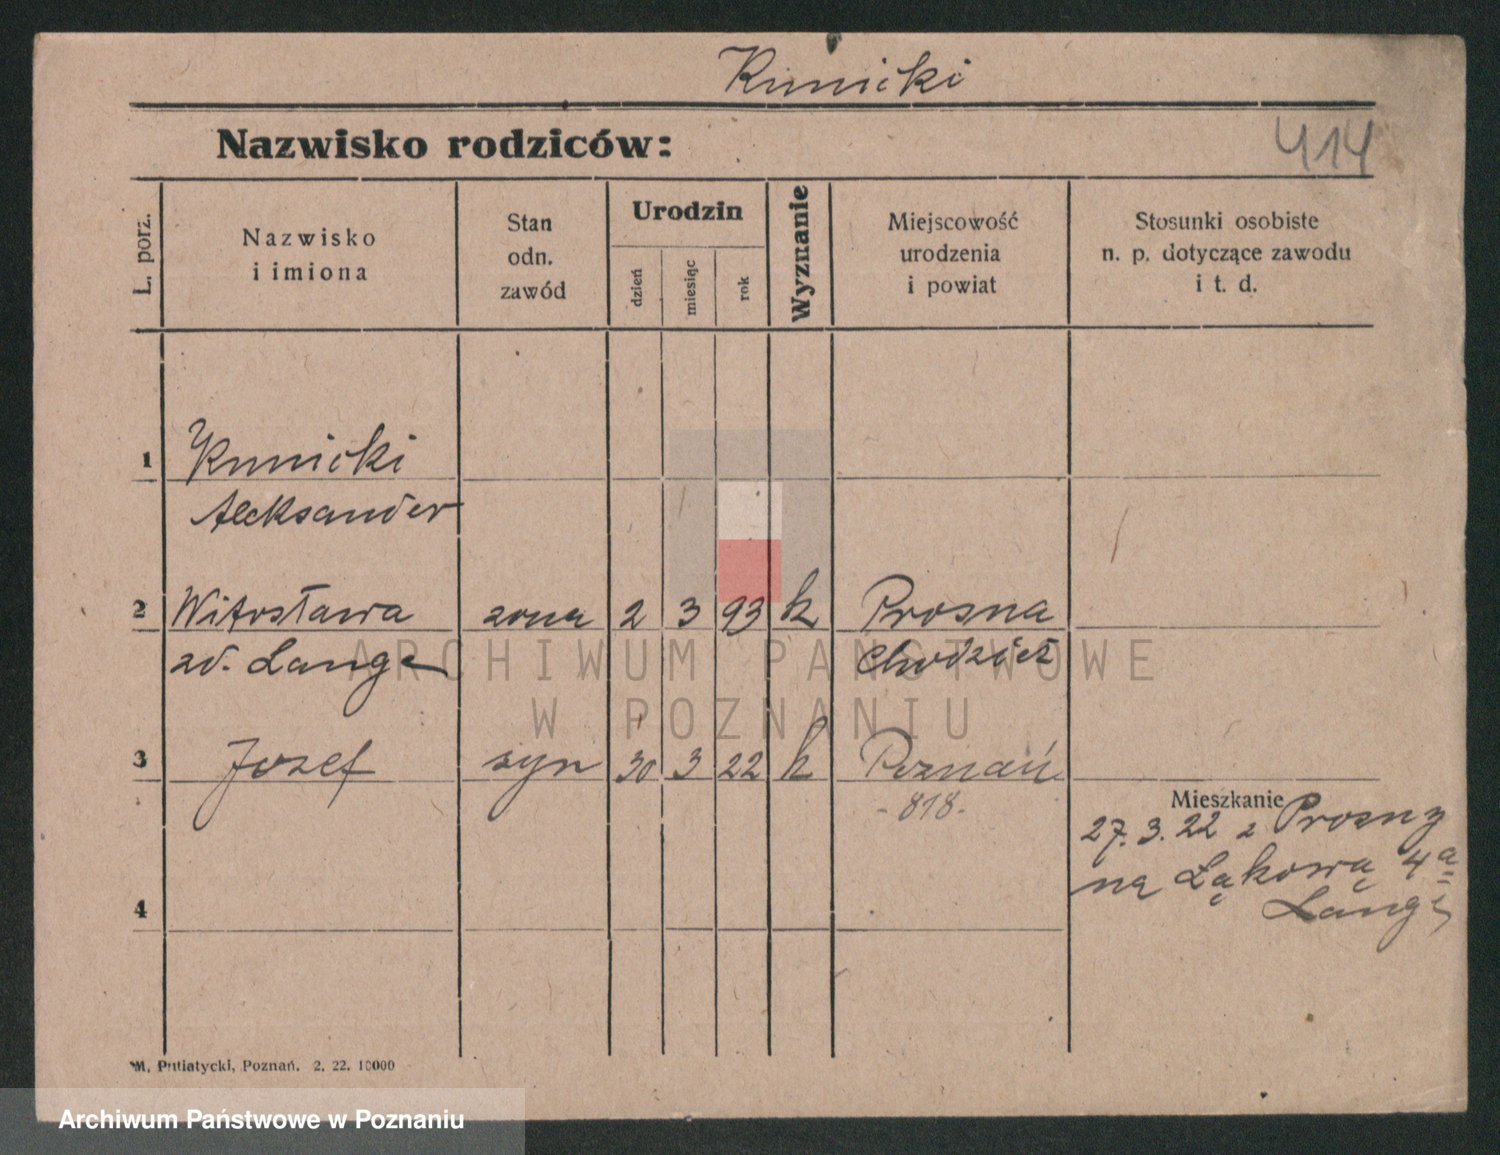 Kunicki
Nazwisko rodziców:
414
L. porz.
Nazwisko
i imiona
Stan
odn.
zawód
Urodzin
dzień
miesiąc
rok
Wyznanie
Miejscowość
urodzenia
i powiat
Stosunki osobiste
n. p. dotyczące zawodu
i t. d.
1 Kunicki
Aleksander
2 Witosława żona 2 3 93 k Prosna
zd. Lange Chodzież
ARCHIWUM PAŃSTWOWE
W POZNANIU
3 Józef syn 30 3 22 k Poznań
Mieszkanie
- 818 -
27. 3. 22 z Prosny
na Łąkową 4a
Lange
4
M. Putiatycki, Poznań. 2. 22. 10000
Archiwum Państwowe w Poznaniu